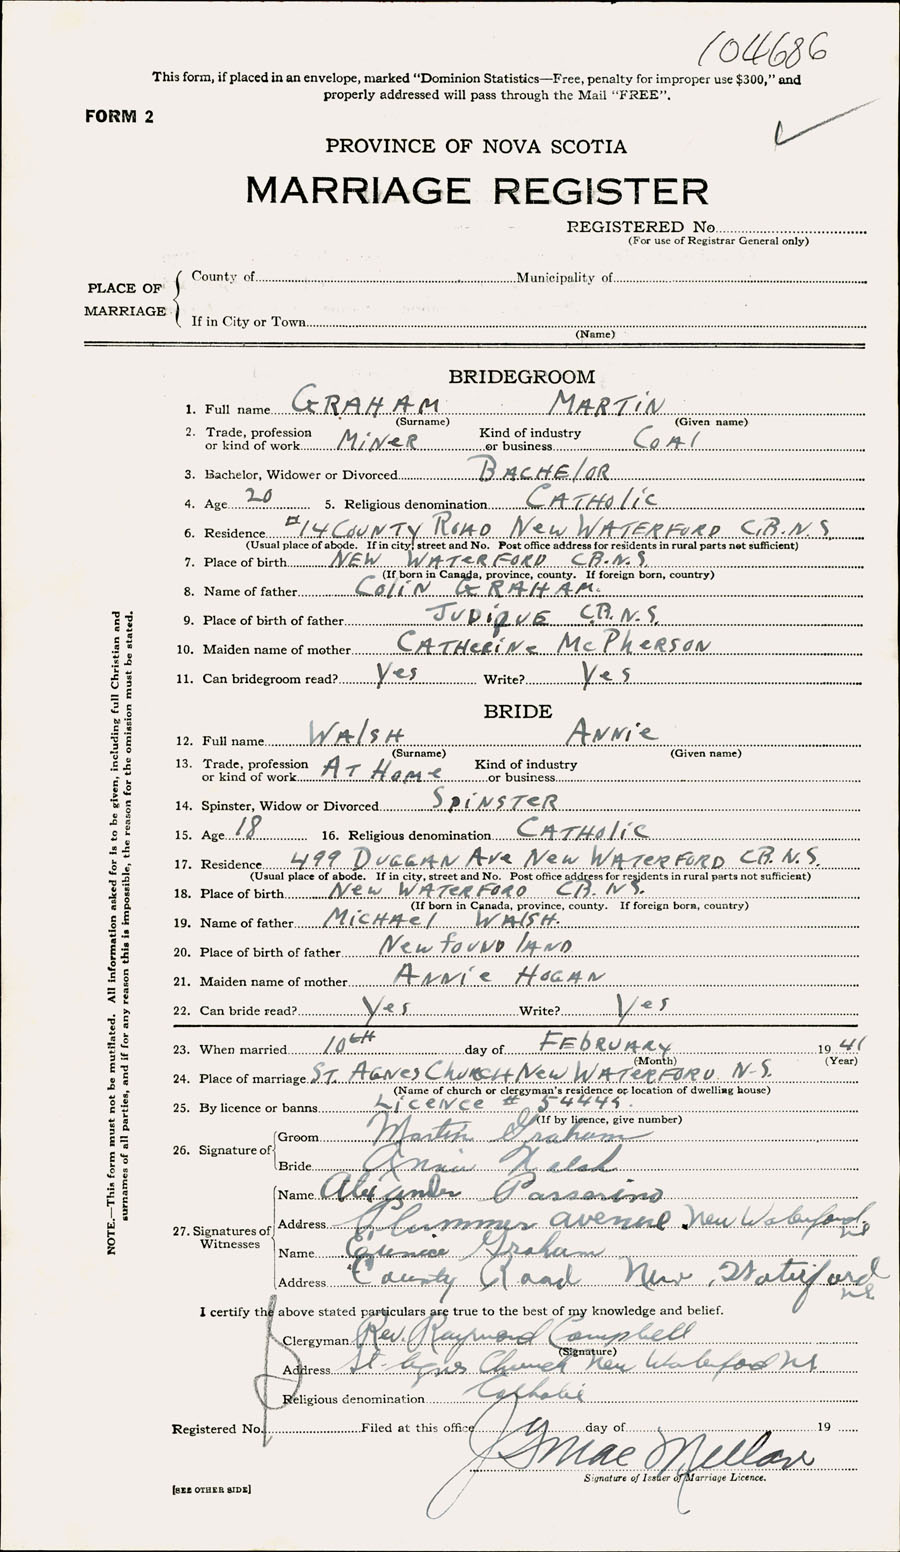 104686
This form, if placed in an envelope, marked "Dominion Statistics—Free, penalty for improper use $300," and
properly addressed will pass through the Mail "FREE".
FORM 2
PROVINCE OF NOVA SCOTIA
MARRIAGE REGISTER
REGISTERED No.
(For use of Registrar General only)
PLACE OF MARRIAGE
County of Municipality of
If in City or Town
(Name)
BRIDEGROOM
1. Full name GRAHAM MARTIN
(Surname) (Given name)
2. Trade, profession or kind of work MINER Kind of industry or business COAL
3. Bachelor, Widower or Divorced BACHELOR
4. Age 20 5. Religious denomination CATHOLIC
6. Residence #14 COUNTY ROAD NEW WATERFORD C.B.N.S
(Usual place of abode. If in city, street and No. Post office address for residents in rural parts not sufficient)
7. Place of birth NEW WATERFORD C.B.N.S.
(If born in Canada, province, county. If foreign born, country)
8. Name of father COLIN GRAHAM.
9. Place of birth of father JUDIQUE C.B.N.S.
10. Maiden name of mother CATHERINE McPHERSON
11. Can bridegroom read? Yes Write? Yes
BRIDE
12. Full name WALSH ANNIE
(Surname) (Given name)
13. Trade, profession or kind of work AT HOME Kind of industry or business
14. Spinster, Widow or Divorced SPINSTER
15. Age 18 16. Religious denomination CATHOLIC
17. Residence 499 DUGGAN AVE NEW WATERFORD C.B.N.S.
(Usual place of abode. If in city, street and No. Post office address for residents in rural parts not sufficient)
18. Place of birth NEW WATERFORD C.B.N.S.
(If born in Canada, province, county. If foreign born, country)
19. Name of father MICHAEL WALSH.
20. Place of birth of father NEWFOUNDLAND
21. Maiden name of mother ANNIE HOGAN
22. Can bride read? Yes Write? Yes
23. When married 10TH day of FEBRUARY 1941
(Month) (Year)
24. Place of marriage ST. AGNES CHURCH NEW WATERFORD N.S.
(Name of church or clergyman's residence or location of dwelling house)
25. By licence or banns LICENCE # 54445
(If by licence, give number)
26. Signature of
Groom Martin Graham
Bride Annie Walsh
27. Signatures of Witnesses
Name Alexander Passerino
Address Plummer avenue New Waterford. NS
Name Graham
Address County Road New Waterford NS
I certify the above stated particulars are true to the best of my knowledge and belief.
Clergyman Rev. Raymond Campbell
(Signature)
Address St. Agnes Church New Waterford NS
Religious denomination Catholic
Registered No. Filed at this office day of 19
J G MacMellow
Signature of Issuer of Marriage Licence.
[SEE OTHER SIDE]
NOTE.—This form must not be mutilated. All information asked for is to be given, including full Christian and
surnames of all parties, and if for any reason this is impossible, the reason for the omission must be stated.